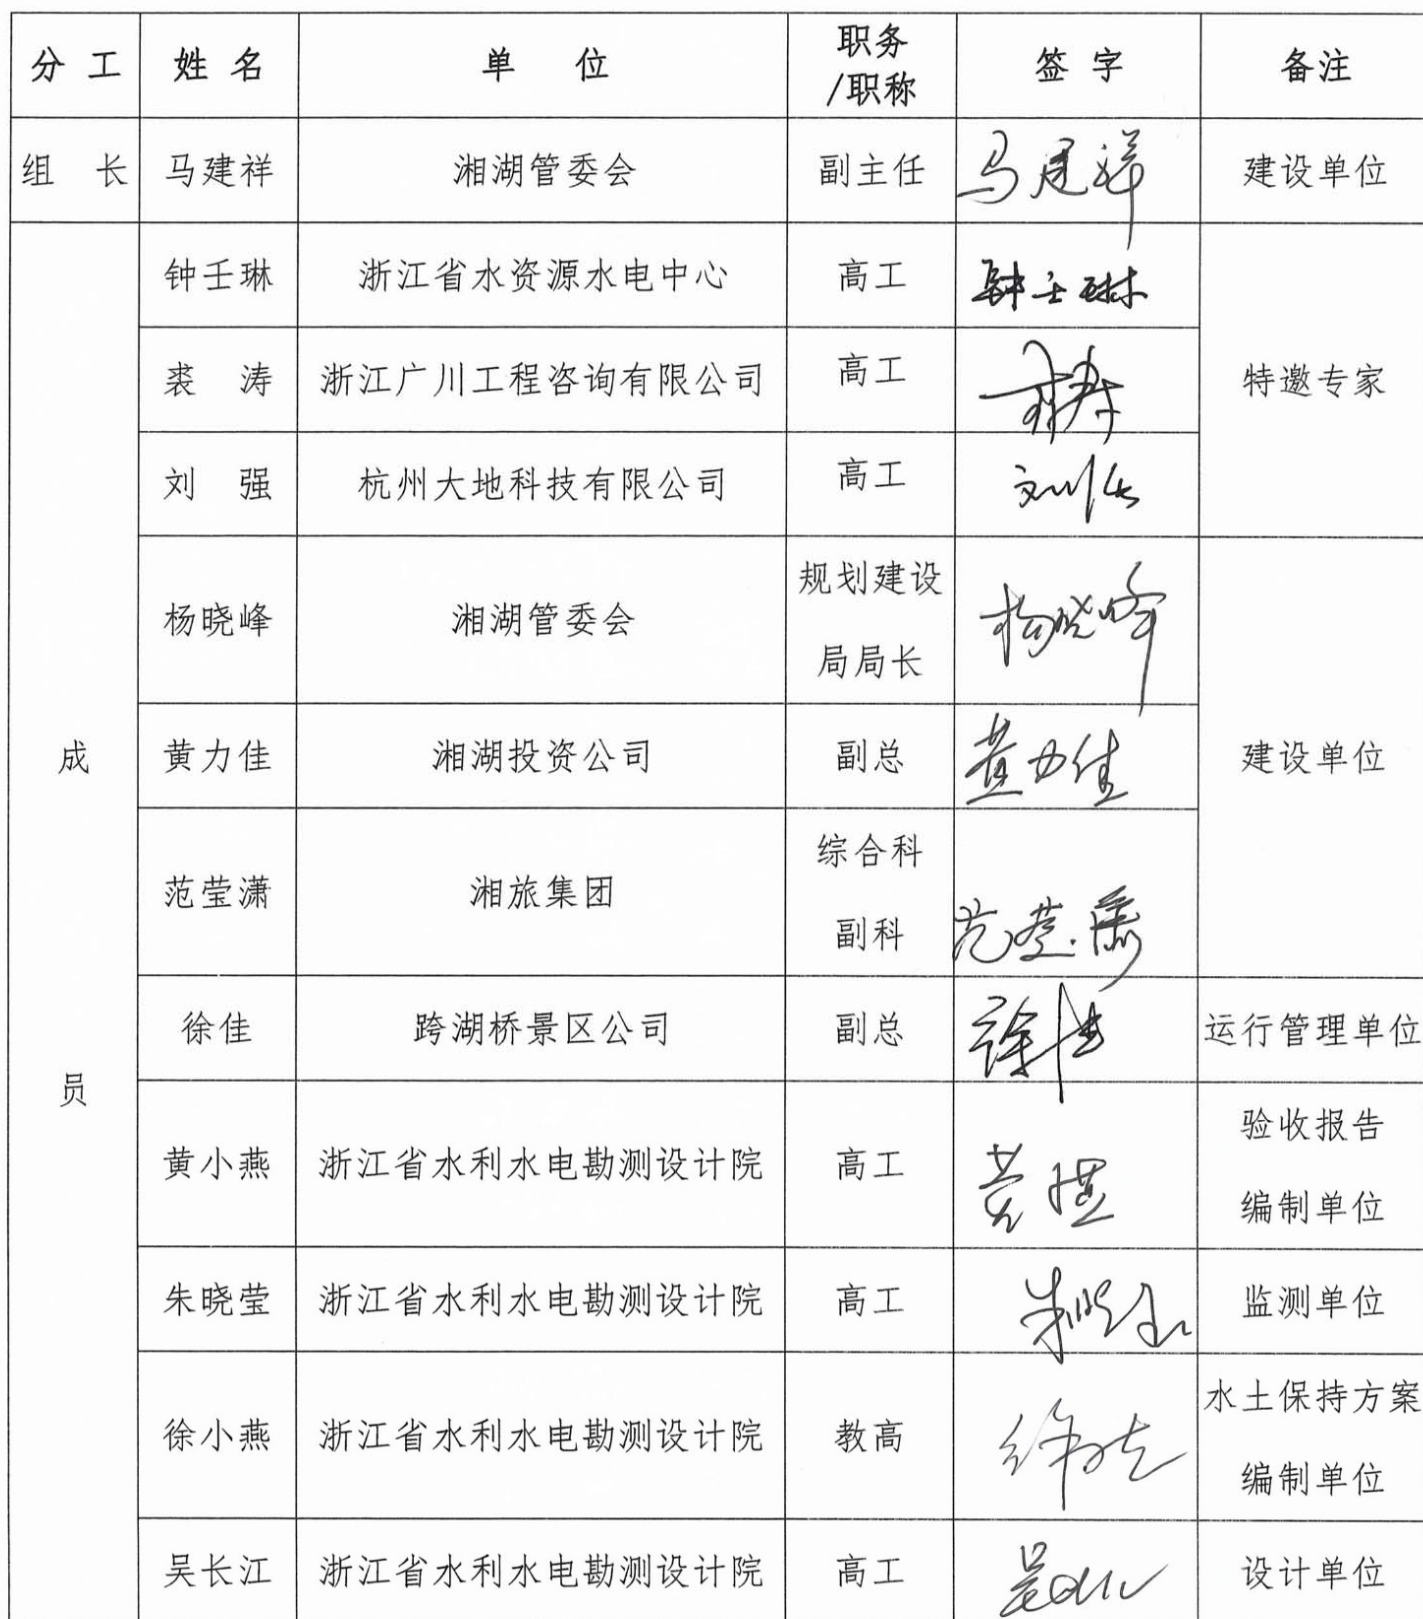 分工 姓名 单位 职务/职称 签字 备注
组长 马建祥 湘湖管委会 副主任 马建祥 建设单位
成员
钟壬琳 浙江省水资源水电中心 高工 钟壬琳 特邀专家
裘涛 浙江广川工程咨询有限公司 高工
刘强 杭州大地科技有限公司 高工 刘强
杨晓峰 湘湖管委会 规划建设局局长 杨晓峰 建设单位
黄力佳 湘湖投资公司 副总 黄力佳
范莹潇 湘旅集团 综合科副科 范莹潇
徐佳 跨湖桥景区公司 副总 徐佳 运行管理单位
黄小燕 浙江省水利水电勘测设计院 高工 验收报告编制单位
朱晓莹 浙江省水利水电勘测设计院 高工 朱晓莹 监测单位
徐小燕 浙江省水利水电勘测设计院 教高 水土保持方案编制单位
吴长江 浙江省水利水电勘测设计院 高工 设计单位